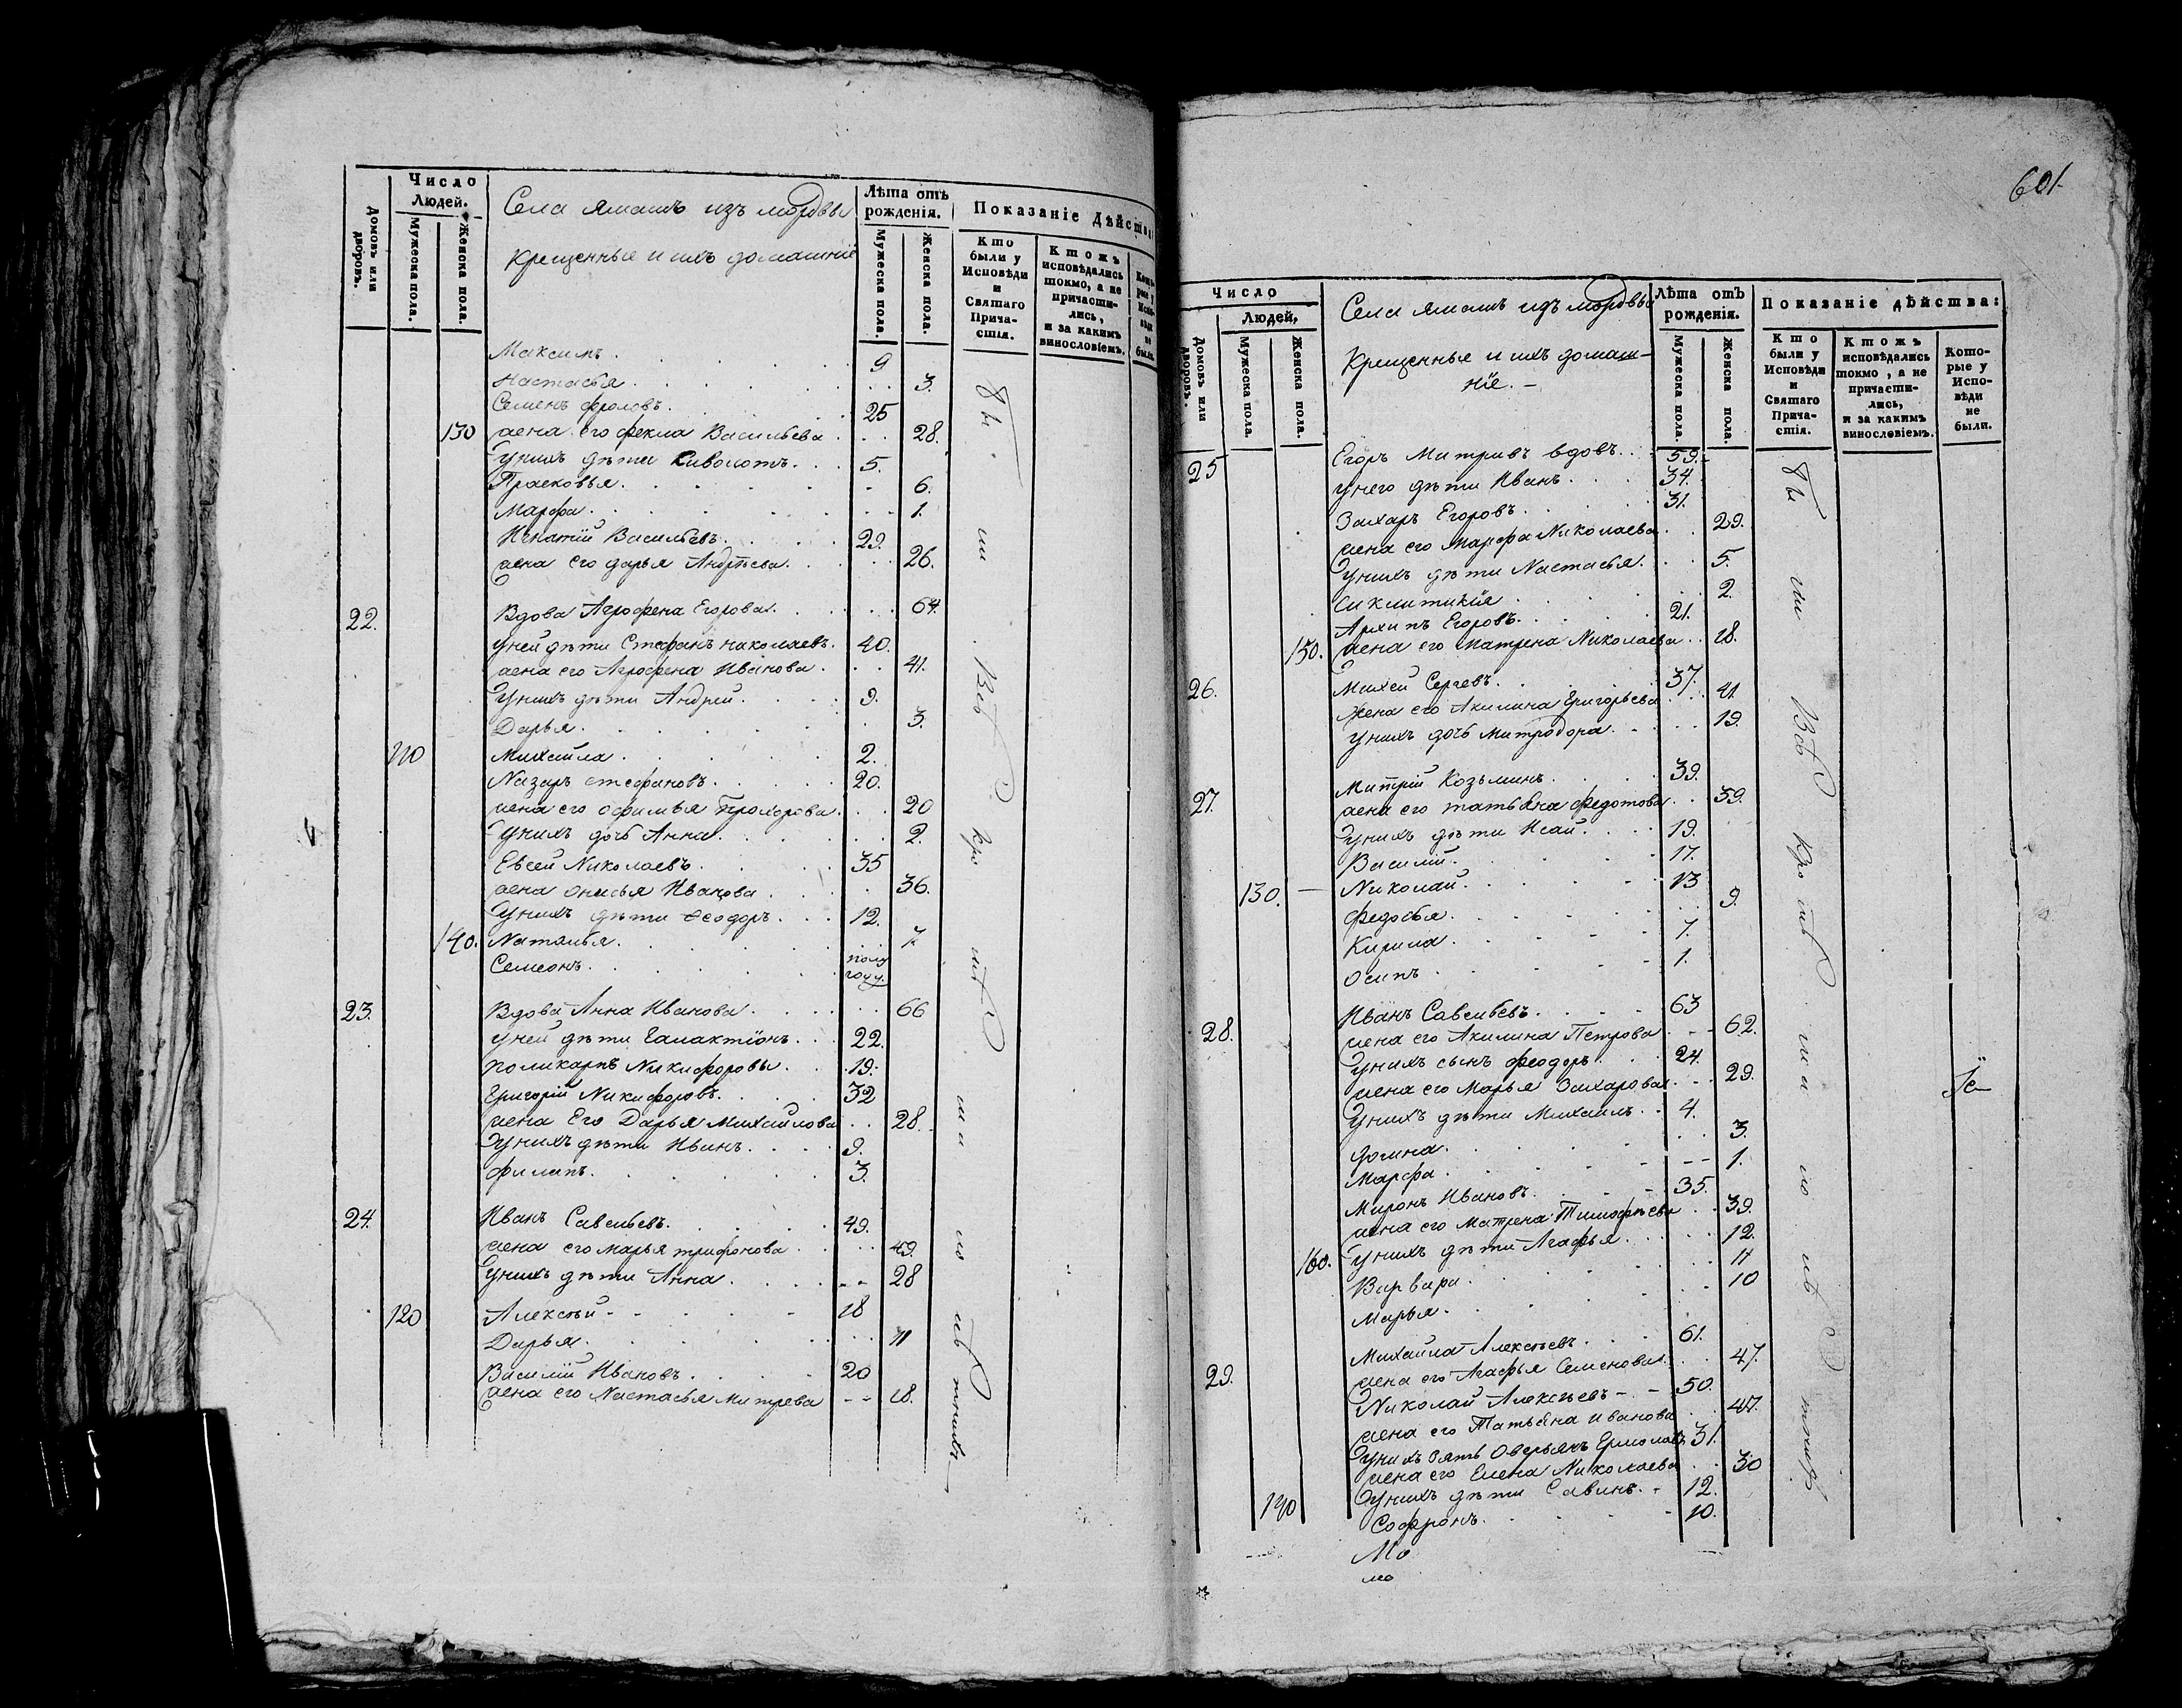 Число Людей.
Домовъ или дворовъ.
Мужеска пола.
Женска пола.
Села Ямашъ изъ мордвы
крещенные и ихъ домашніе
Лѣта отъ рожденія.
Мужеска пола.
Женска пола.
Показаніе Дѣйства:
Кто были у Исповѣди и Святаго Причастія.
Ктожъ исповѣдались токмо, а не причастились, и за какимъ винословіемъ.
Максимъ 9
Настасья 3.
Семенъ Фроловъ 25
130 жена его Фекла Васильева 28.
у нихъ дѣти 5.
Прасковья 6.
Марфа 1.
Игнатій Васильевъ 29.
жена его Дарья Андрѣева 26.
22. Вдова Агрофена Егорова 64.
у ней дѣти Стефанъ Николаевъ 40.
жена его Агрофена Иванова 41.
у нихъ дѣти Андрей 9.
Дарья 3.
110 Михайла 2.
Назаръ Стефановъ 20.
жена его Офимья Прохорова 20
у нихъ дочь Анна 2.
Евсей Николаевъ 35
жена Онисья Иванова 36.
у нихъ дѣти Феодоръ 12.
140. Наталья 7.
Семеонъ полу году.
23. Вдова Анна Иванова 66
у ней дѣти Галактіонъ 22.
Поликарпъ Никифоровы 19.
Григорій Никифоровъ 32
жена Его Дарья Михайлова 28.
у нихъ дѣти Иванъ 9.
Филипъ 3.
24. Иванъ Савельевъ 49.
жена его Марья Трифонова 49.
у нихъ дѣти Анна 28
120 Алексѣй 18
Дарья 11
Василій Ивановъ 20
жена его Настасья Митрева 18.
601.
Число Людей,
Домовъ или дворовъ.
Мужеска пола.
Женска пола.
Села Ямашъ изъ мордвы
Крещенные и ихъ домаш-
ніе. –
Лѣта отъ рожденія.
Мужеска пола.
Женска пола.
Показаніе дѣйства:
Кто были у Исповѣди и Святаго Причастія.
Ктожъ исповѣдались токмо, а не причастились, и за какимъ винословіемъ.
Которые у Исповѣди не были.
25 Егоръ Митривъ вдовъ 59.
у него дѣти Иванъ 34.
Захаръ Егоровъ 31.
жена его Марфа Николаева 29.
у нихъ дѣти Настасья 5.
2.
Архипъ Егоровъ 21.
150. жена его Матрена Николаева 18.
26. Михей Сергевъ 37.
Жена его Акилина Григорьева 41.
у нихъ дочь Митродора 19.
27. Митрій Козьминъ 39.
жена его Татьяна Федотова 39.
у нихъ дѣти Исай 19.
Василій 17.
130. Николай 13
Федосья 9.
Кирила 7.
Осипъ 1.
28. Иванъ Савельевъ 63
жена его Акилина Петрова 62.
у нихъ сынъ Феодоръ 24.
жена его Марья Захарова 29.
у нихъ дѣти Михаилъ 4.
Домна 3.
Марфа 1.
Миронъ Ивановъ 35.
жена его Матрена Тимофѣева 39.
160. у нихъ дѣти Агафья 12.
Варвара 11
Марья 10
29. Михайла Алексѣевъ 61.
жена его Агафья Семенова 47.
Николай Алексѣевъ 50.
жена его Татьяна Иванова 47.
у нихъ зять Оверьянъ Ермолаевъ 31.
жена его Елена Николаева 30
у нихъ дѣти Савинъ 12.
140 Софронъ 10.
Мо
мо